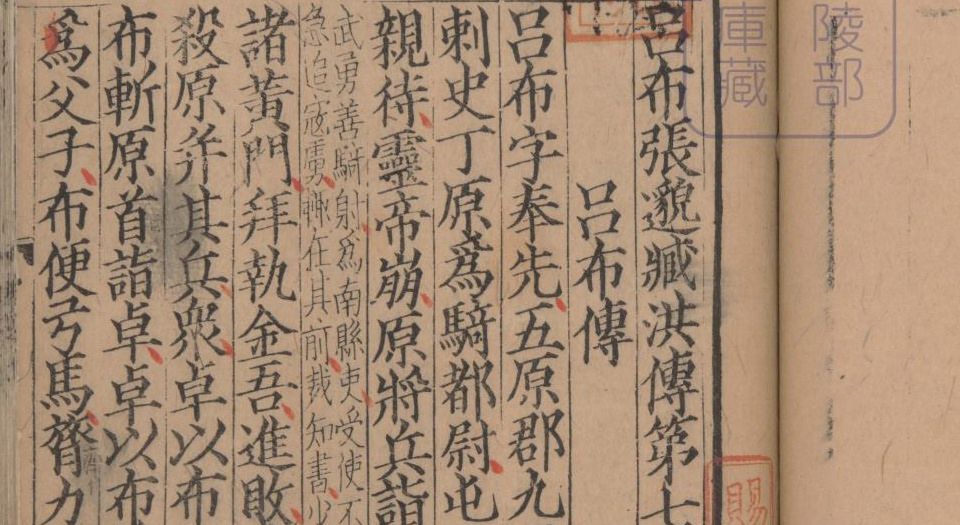 陵部
庫藏
呂布張邈臧洪傳第七
呂布傳
呂布字奉先五原郡九
刺史丁原爲騎都尉屯
親待靈帝崩原將兵詣
武勇善騎射爲南縣吏受使不
急追寇虜輒在其前裁知書少
諸黃門拜執金吾進敗
殺原幷其兵衆卓以布
布斬原首詣卓卓以布
爲父子布便弓馬膂力
賜